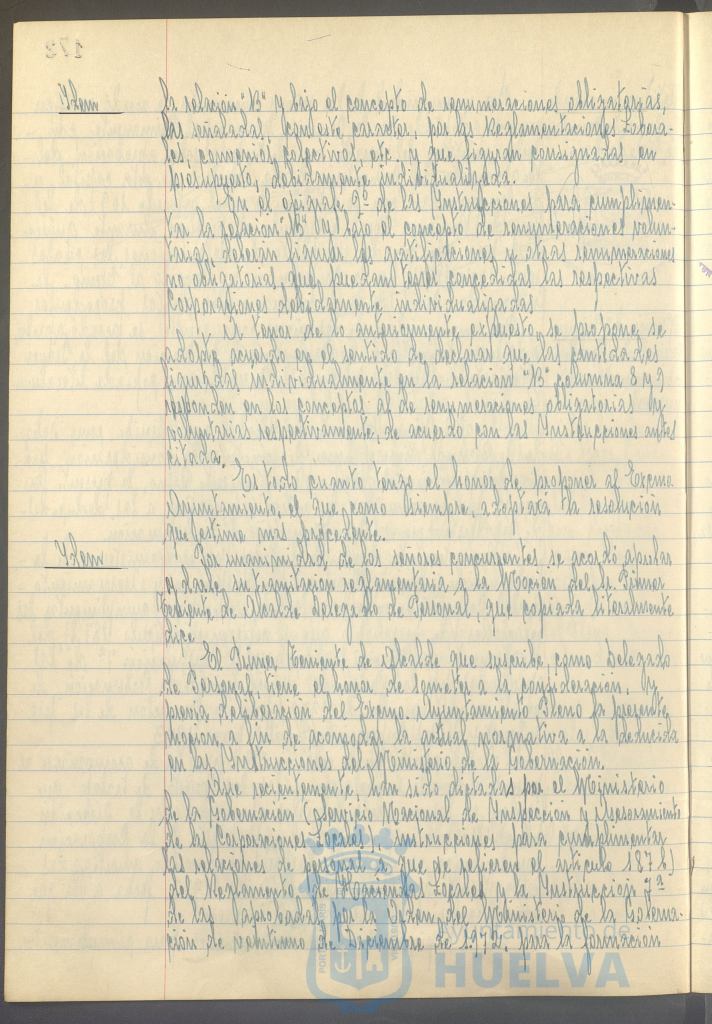 Idem
la relación "B" y bajo el concepto de remuneraciones obligatorias,
las señaladas con este caracter, por las Reglamentaciones Labora-
les, convenios colectivos, etc. y que figuran consignadas en
presupuesto, debidamente individualizada.
En el epigrafe 9º de las Instrucciones para cumplimen-
tar la relación "B" y bajo el concepto de remuneraciones volun-
tarias, deberán figurar las gratificaciones y otras remuneraciones
no obligatorias, que puedan tener concedidas las respectivas
Corporaciones debidamente individualizadas.
A tenor de lo anteriormente expuesto, se propone se
adopte acuerdo en el sentido de declarar que las cantidades
figuradas individualmente en la relación "B" columna 8 y 9
responden en los conceptos de remuneraciones obligatorias y
voluntarias respectivamente, de acuerdo con las Instrucciones antes
citada.
Es todo cuanto tengo el honor de proponer al Excmo
Ayuntamiento, el que como siempre, adoptará la resolución
que estime mas procedente.
Idem
Por unanimidad de los señores concurrentes se acordó aprobar
y darle su tramitación reglamentaria a la Moción del Sr. Primer
Teniente de Alcalde Delegado de Personal, que copiada literalmente
dice:
El Primer Teniente de Alcalde que suscribe, como Delegado
de Personal, tiene el honor de someter a la consideración, y
previa deliberación del Excmo. Ayuntamiento Pleno la presente
moción, a fin de acomodar la actual normativa a la deducida
en las Instrucciones del Ministerio de la Gobernación.
Que recientemente, han sido dictadas por el Ministerio
de la Gobernación (Servicio Nacional de Inspección y Asesoramiento
de las Corporaciones Locales), instrucciones para cumplimentar
las relaciones de personal a que se refieren el artículo 187 2)
del Reglamento de Haciendas Locales y la Instrucción 7ª
de las aprobadas por la Orden del Ministerio de la Goberna-
ción de veintiuno de Diciembre de 1.972, para la formación
Ayuntamiento de
HUELVA